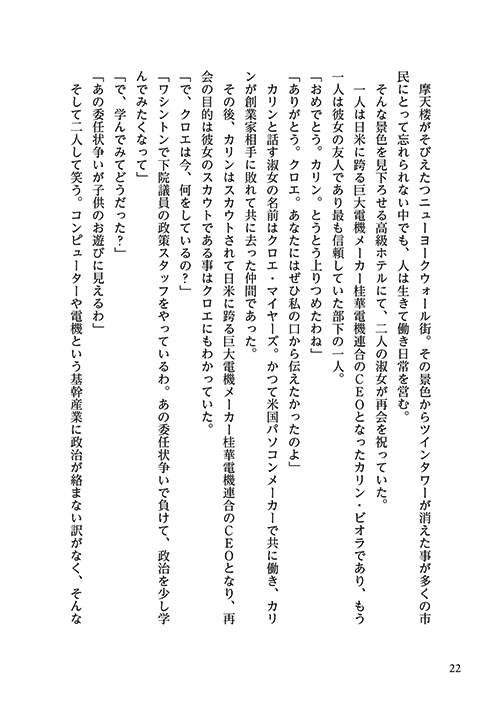 摩天楼がそびえたつニューヨークウォール街。その景色からツインタワーが消えた事が多くの市
民にとって忘れられない中でも、人は生きて働き日常を営む。
　そんな景色を見下ろせる高級ホテルにて、二人の淑女が再会を祝っていた。
　一人は日米に跨る巨大電機メーカー桂華電機連合のＣＥＯとなったカリン・ビオラであり、もう
一人は彼女の友人であり最も信頼していた部下の一人。
「おめでとう。カリン。とうとう上りつめたわね」
「ありがとう。クロエ。あなたにはぜひ私の口から伝えたかったのよ」
　カリンと話す淑女の名前はクロエ・マイヤーズ。かつて米国パソコンメーカーで共に働き、カリ
ンが創業家相手に敗れて共に去った仲間であった。
　その後、カリンはスカウトされて日米に跨る巨大電機メーカー桂華電機連合のＣＥＯとなり、再
会の目的は彼女のスカウトである事はクロエにもわかっていた。
「で、クロエは今、何をしているの？」
「ワシントンで下院議員の政策スタッフをやっているわ。あの委任状争いで負けて、政治を少し学
んでみたくなって」
「で、学んでみてどうだった？」
「あの委任状争いが子供のお遊びに見えるわ」
　そして二人して笑う。コンピューターや電機という基幹産業に政治が絡まない訳がなく、そんな
22